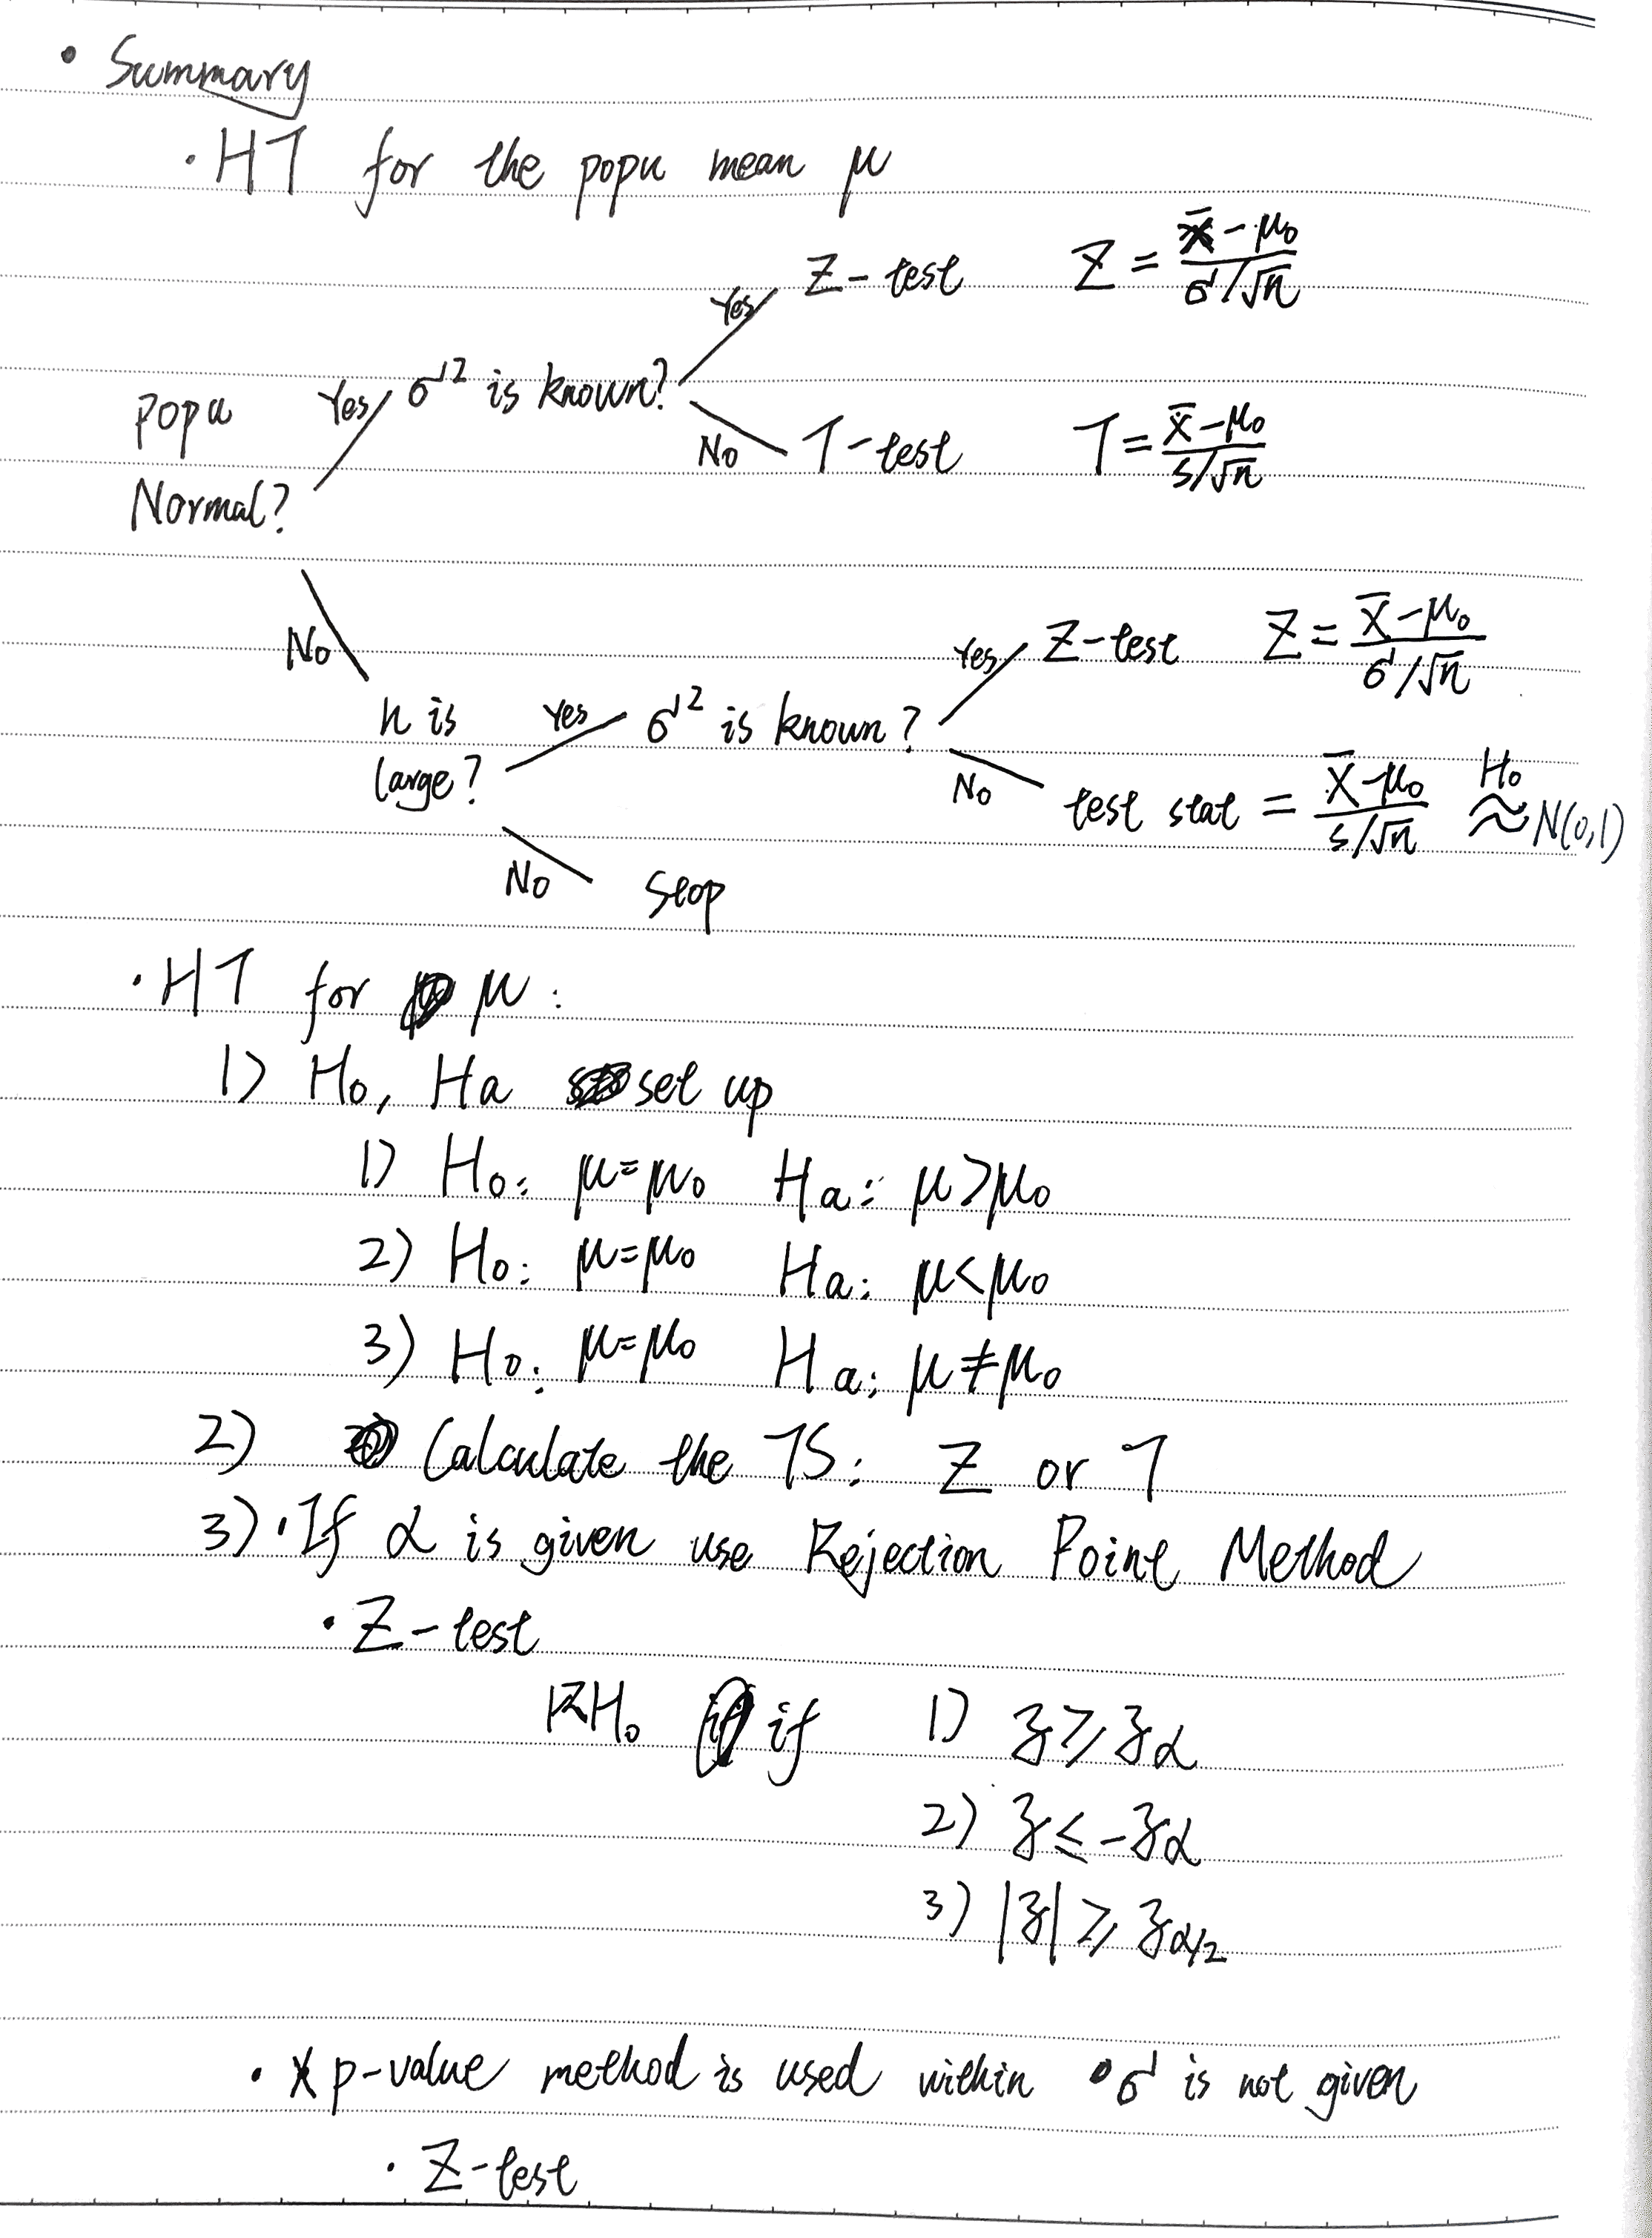 • Summary
· HT for the popu mean μ
Yes Z-test Z = (x̄ - μ₀)/(σ/√n)
popu Yes σ² is known?
Normal? No T-test T = (x̄ - μ₀)/(s/√n)
No
Yes Z-test Z = (x̄ - μ₀)/(σ/√n)
n is Yes σ² is known?
large? No test stat = (x̄ - μ₀)/(s/√n) H₀ ≈ N(0,1)
No Stop
· HT for μ:
1) H₀, Ha set up
1) H₀: μ=μ₀ Ha: μ>μ₀
2) H₀: μ=μ₀ Ha: μ<μ₀
3) H₀: μ=μ₀ Ha: μ≠μ₀
2) Calculate the TS: Z or T
3) · If α is given use Rejection Point Method
· Z-test
RH₀ if 1) z ≥ zα
2) z ≤ -zα
3) |z| ≥ zα/2
· p-value method is used within • σ is not given
· Z-test